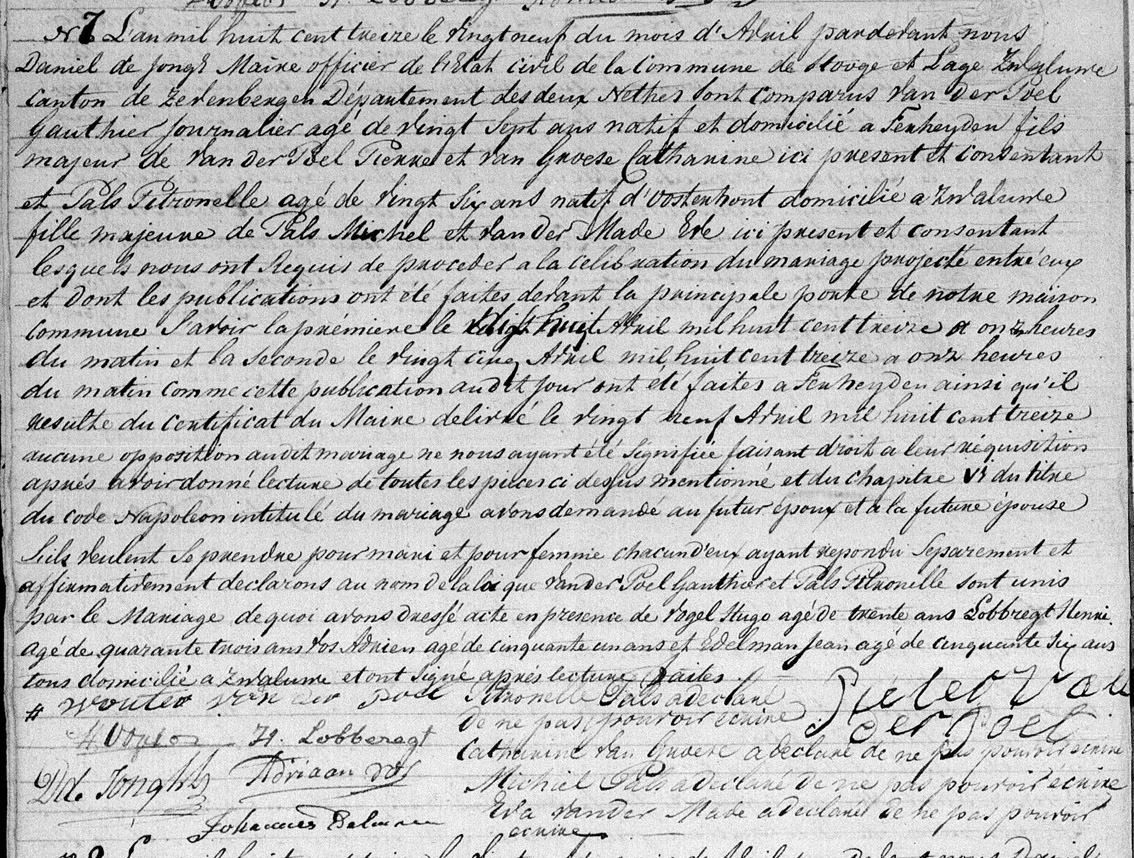 N 7 L'an mil huit cent treize le vingt neuf du mois d'Avril pardevant nous
Daniel de Jongh Maire officier de l'Etat civil de la Commune de Hooge et Lage Zwaluwe
Canton de Zevenbergen Département des deux Nethes ont comparus van der Poel
Gauthier journalier agé de vingt sept ans natif et domicilié a Terheyden fils
majeur de van der Poel Pierre et van Gwese Catharine ici present et consentant
et Pals Petronelle agé de vingt six ans natif d'Oostenhout domicilié a Zwaluwe
fille majeure de Pals Michel et van der Made Eve ici present et consentant
lesquels nous ont Requis de proceder a la célébration du mariage projecté entre eux
et dont les publications ont été faites devant la principale porte de notre maison
commune Savoir la prémiere le dix huit Avril mil huit cent treize a onz heures
du matin et la seconde le vingt cinq Avril mil huit cent treize a onz heures
du matin comme cette publication audit jour ont été faites a Terheyden ainsi qu'il
resulte du certificat du Maire delivré le vingt neuf Avril mil huit cent treize
aucune opposition audit mariage ne nous ayant été signifiée faisant droit a leur réquisition
après avoir donné lecture de toutes les pièces ci dessus mentionné et du chapitre VI du titre
du code Napoleon intitulé du mariage avons demandé au futur époux et a la future épouse
Sils veulent se prendre pour mari et pour femme chacun d'eux ayant repondu separement et
affirmativement declarons au nom de la loi que vander Poel Gauthier et Pals Petronelle sont unis
par le Mariage de quoi avons dressé acte en presence de Vogel Hugo agé de trente ans Lobbregt Henri
agé de quarante trois ans Vos Adrien agé de cinquante un ans et Edelman Jean agé de cinquante six ans
tous domicilié a Zwaluwe et ont signé après lecture faites
# Wouter van der Poel Petronelle Pals a declaré Pieter Van
de ne pas pouvoir écrire der Poel
H Vogel H. Lobberegt Catharine van Gwese a declaré de ne pas pouvoir écrire
Dl. de Jongh Adriaan Vos Michiel Pals a declaré de ne pas pouvoir écrire
Johannes Edelman Eva vander Made a declaré de ne pas pouvoir
écrire